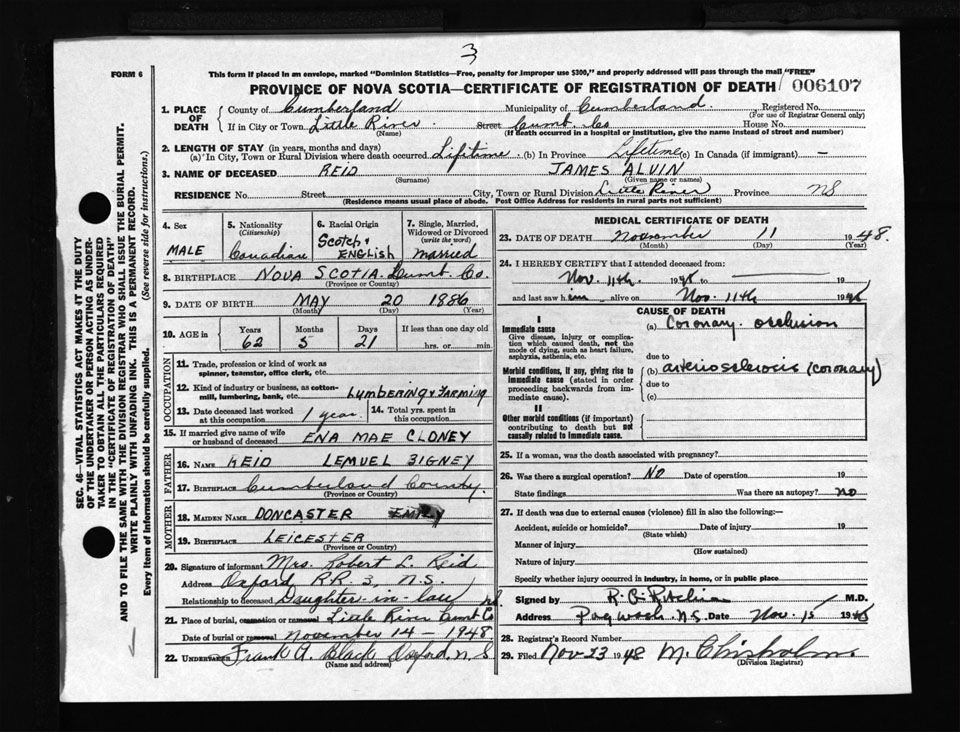 3
FORM 6
This form if placed in an envelope, marked "Dominion Statistics—Free, penalty for improper use $300," and properly addressed will pass through the mail "FREE"
PROVINCE OF NOVA SCOTIA—CERTIFICATE OF REGISTRATION OF DEATH
006107
1. PLACE OF DEATH
County of Cumberland Municipality of Cumberland Registered No.
(For use of Registrar General only)
If in City or Town Little River Street Cumb. Co House No.
(Name) (If death occurred in a hospital or institution, give the name instead of street and number)
2. LENGTH OF STAY (in years, months and days)
(a) In City, Town or Rural Division where death occurred Lifetime (b) In Province Lifetime (c) In Canada (if immigrant) —
3. NAME OF DECEASED REID JAMES ALVIN
(Surname) (Given name or names)
RESIDENCE No. Street City, Town or Rural Division Little River Province NS
(Residence means usual place of abode. Post Office Address for residents in rural parts not sufficient)
4. Sex MALE
5. Nationality (Citizenship) Canadian
6. Racial Origin Scotch & ENGLISH
7. Single, Married, Widowed or Divorced (write the word) married
8. BIRTHPLACE NOVA SCOTIA Cumb. Co.
(Province or County)
9. DATE OF BIRTH MAY 20 1886
(Month) (Day) (Year)
10. AGE in Years Months Days If less than one day old
62 5 21 hrs. or min.
OCCUPATION
11. Trade, profession or kind of work as spinner, teamster, office clerk, etc.
12. Kind of industry or business, as cotton-mill, lumbering, bank, etc. LUMBERING & FARMING
13. Date deceased last worked at this occupation 1 year. 14. Total yrs. spent in this occupation
15. If married give name of wife or husband of deceased ENA MAE CLONEY
FATHER
16. NAME REID LEMUEL SIGNEY
17. BIRTHPLACE Cumberland County.
(Province or County)
MOTHER
18. MAIDEN NAME DONCASTER EMILY
19. BIRTHPLACE LEICESTER
(Province or Country)
20. Signature of informant Mrs. Robert L. Reid
Address Oxford R.R. 3, N.S.
Relationship to deceased Daughter-in-law
21. Place of burial, cremation or removal Little River Cumb Co NS
Date of burial or removal November 14 - 1948
22. UNDERTAKER Frank A. Black Oxford, N.S
(Name and address)
MEDICAL CERTIFICATE OF DEATH
23. DATE OF DEATH November 11 1948.
(Month) (Day) (Year)
24. I HEREBY CERTIFY that I attended deceased from:
Nov. 11th 1948 19
and last saw him alive on Nov. 11th 1948
CAUSE OF DEATH
I
Immediate cause
Give disease, injury or complication which caused death, not the mode of dying, such as heart failure, asphyxia, asthenia, etc.
(a) Coronary occlusion
due to
Morbid conditions, if any, giving rise to immediate cause (stated in order proceeding backwards from immediate cause).
(b) arteriosclerosis (coronary)
due to
(c)
II
Other morbid conditions (if important) contributing to death but not causally related to immediate cause.
25. If a woman, was the death associated with pregnancy?
26. Was there a surgical operation? NO Date of operation 19
State findings Was there an autopsy? no
27. If death was due to external causes (violence) fill in also the following:—
Accident, suicide or homicide? Date of injury 19
(State which)
Manner of injury
(How sustained)
Nature of injury
Specify whether injury occurred in industry, in home, or in public place
Signed by M.D.
Address Pugwash, N.S. Date Nov. 15 1948
28. Registrar's Record Number
29. Filed Nov 23 1948 M. Chisholm
(Division Registrar)
SEC. 46—VITAL STATISTICS ACT MAKES IT THE DUTY
OF THE UNDERTAKER OR PERSON ACTING AS UNDER-
TAKER TO OBTAIN ALL THE PARTICULARS REQUIRED
IN THE "CERTIFICATE OF REGISTRATION OF DEATH"
AND TO FILE THE SAME WITH THE DIVISION REGISTRAR WHO SHALL ISSUE THE BURIAL PERMIT.
WRITE PLAINLY WITH UNFADING INK. THIS IS A PERMANENT RECORD.
Every item of information should be carefully supplied. (See reverse side for instructions.)